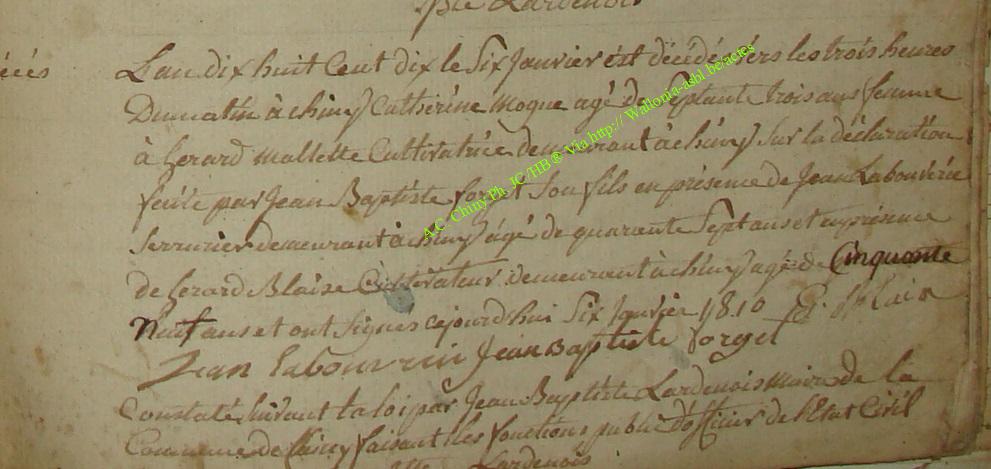 Bte Lardenois
décés
L'an dix huit Cent dix le Six Janvier est décédé vers les trois heures
Du matin à chiny Catherine moque agé de Septante trois ans femme
à Gerard mallette Cultivatrice demeurant à chiny Sur la déclaration
feûte par Jean Baptiste forget Son fils en présence de Jean Labouverie
Serrurier demeurant à chiny âgé de quarante Sept ans et en présence
de Gerard Blaise Cultivateur Demeurant à chiny agé de Cinquante
neuf ans et ont Signes cejourd'hui Six Janvier 1810 G. Blaise
Jean Labouverie Jean Baptiste forget
Constaté suivant la loi par Jean Baptiste Lardenois Maire de la
Commune de Chiny faisant les fonctions public d'officier de l'Etat Civil
Lardenois
A.C. Chiny Ph. JC HB ® Via http:// Wallonia-asbl.be/actes